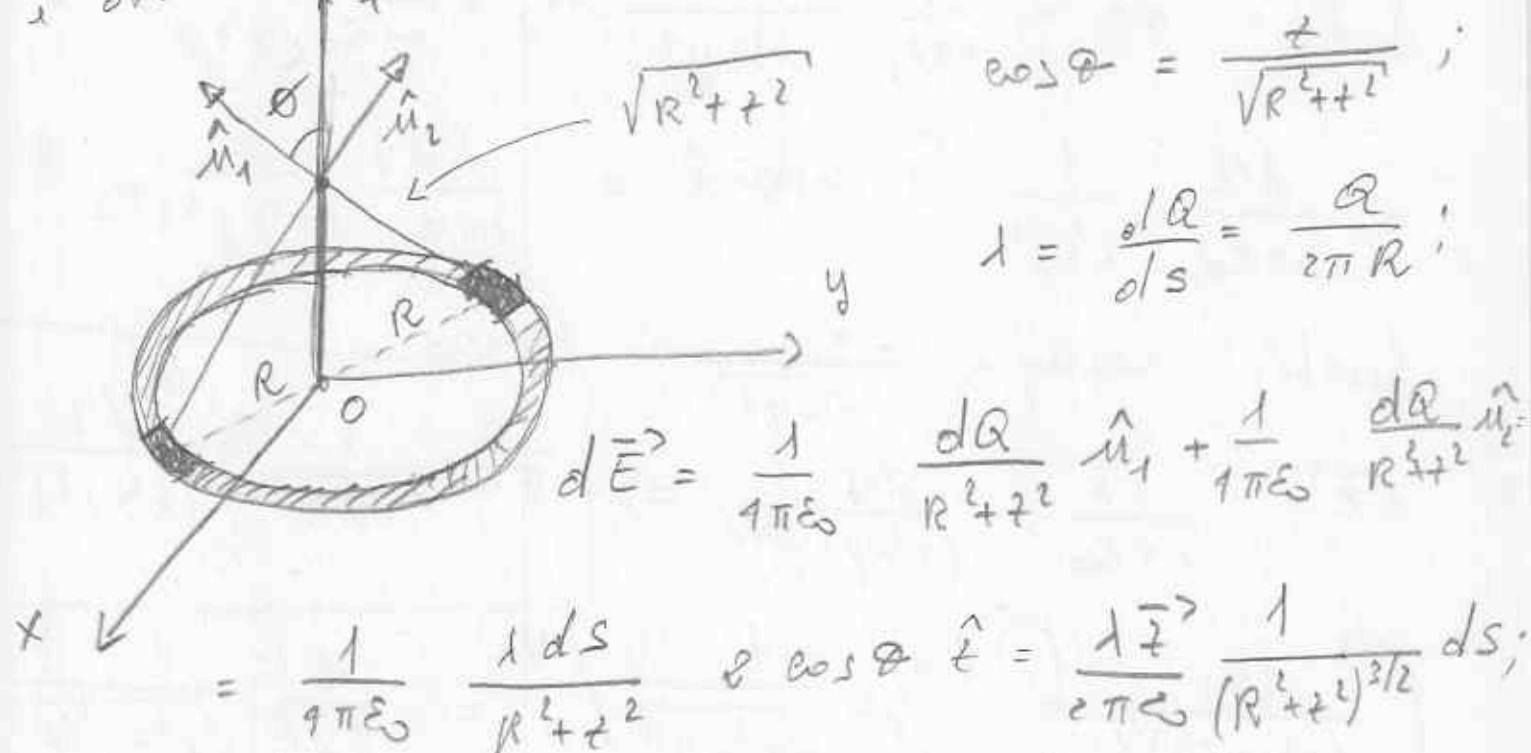 z
√(R²+z²)
cos θ = z / √(R²+z²) ;
û₁ θ û₂
λ = dQ/dS = Q / 2πR ;
y
R
R
O
dE⃗ = 1/4πε₀ dQ/(R²+z²) û₁ + 1/4πε₀ dQ/(R²+z²) û₂ =
x
= 1/4πε₀ λ dS/(R²+z²) 2 cos θ ẑ = λ z⃗/2πε₀ 1/(R²+z²)^(3/2) dS ;